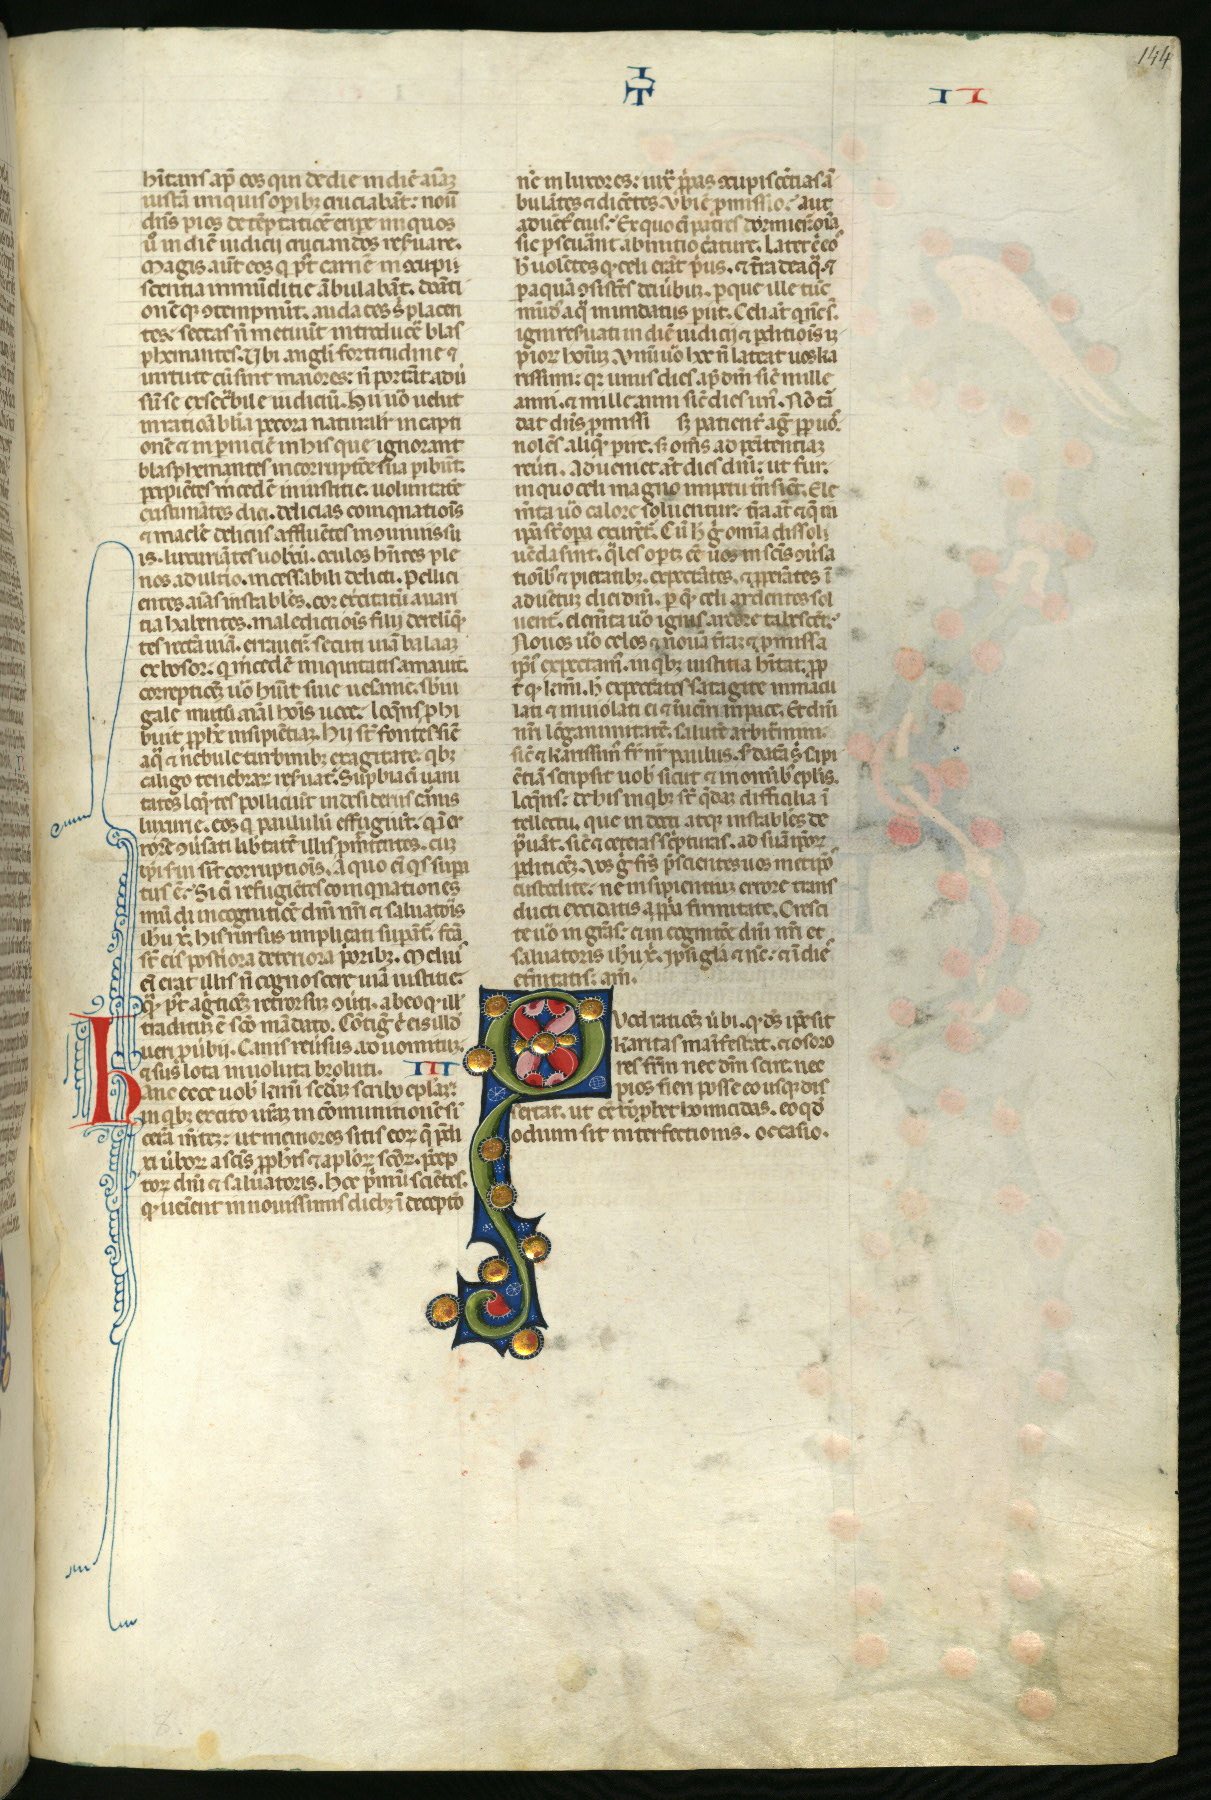 144
I
T
II
hitans apđ eos qui de die in diē aīaʒ
iustā iniquis opibʒ cruciabāt: nouit
dn̄s pios de tēptatiōe eripe iniquos
ū in diē iudicii cruciandos reſuare.
Magis aūt eos q̄ pꝰt carnē in ꝯcupi
scentia inmūditie ābulabāt. dōati
onēqꝫ ꝯtempnūt. audaces s̄ placen
tes: sectas nō metuūt introducē blas
phemantes. Ubi angli fortitudine ⁊
uirtute cū sint maiores: nō portāt adū
sū se exsecͣbile iudiciū. Hii uō uelut
inratioābilia pecora naturalr in capti
onē ⁊ in pniciē in his que ignorant
blasphemantes in corruptōe sua pibūt.
pcipiētes mcedē iniustitie. uoluntatē
existimātes diei. delicias coinqnatiōis
⁊ macle deliciis affluētes in ꝯuiuiis su
is. luxuriātes uobcū. oculos hn̄tes ple
nos adultio. incessabili delicti. Pellici
entes aīas instabiles. cor exercitatū auari
tia habentes. maledictiōis filii derelīq̄
tes rectā uiā. errauer̄t secuti uiā balaaʒ
ex bosor. q̄ mcedē iniquitatis amauit.
correptiōeʒ uō huīt sue uesanie. sbiu
gale mutū aīal hoīs uoce loq̄ns phi
buit pphe insipiētiaʒ. Hii st̄ fontes sic̄
aq̄ ⁊ nebule turbinibʒ exagitate. qbʒ
caligo tenebraꝝ reſuat̄. Supbia eī uani
tates loq̄ntes pelliciūt in desideriis carnis
luxurie. eos q̄ paululū effugiūt. q̄ in er
rore ꝯuersāt libtatē illis pmittentes. cuʒ
ipsi sui sīt corruptiōis. A quo eī qs supa
tus ē: Si eī refugiētes coinqnationes
mūdi in cognitiōe dn̄i nr̄i ⁊ saluatōis
ihū xp̄i. his rursus inplicati supant̄. fcā
st̄ eis postiora deteriora priorībʒ. Meliuſ
eī erat illis nō cognoscere uiā iustitie.
q̄ꝫ pꝰt agnitiōeʒ retrorsū ꝯuti. ab eo qđ ill
traditū ē scō mādato. Cōtigit eī eis illđ
ueri puerbii. Canis reūsus ad uomitū.
⁊ sus lota in uoluta bro luti. III
Hanc ecce uobis kmī scđm scribo eplaʒ:
in qbʒ excito urāʒ in cōmunitionē si
cerā mteʒ: ut memores sitis eoꝝ q̄ pdi
xi ūboꝝ a scīs pphis ⁊ aploꝝ uroꝝ. pcep
torʒ dn̄i ⁊ saluatoris. Hoc pmū sciētes.
q̄ ueīent in nouissimis diebʒ ī decepto
ne inlusores: iux̄ pprias ꝯcupiscētias ā
bulātes ⁊ dicētes. Ubi ē pmissio. aut
aduēt eius: Ex quo eī patres dormierunt oīa
sic pseuānt ab initio cature. Latet eī eos
h uolētes. q̄ celi erāt prius. ⁊ tra de aq̄. ⁊
p aquā ꝯsistēs dei ūbo. p que ille tūc
mūdꝰ aq̄ inundatus piit. Celi aūt q̄ nūc st̄.
igni reſuati in diē iudicii ⁊ pditiōis ī
pioꝝ hoīum. Unū uō hoc nō lateat uos ka
rissimi: qꝛ unus dies apđ dn̄m sic̄ mille
anni. ⁊ mille anni sic̄ dies unꝰ. Nō tar
dat dn̄s pmissi sꝫ patienter agit pp uos.
nolēs aliqs pire. sꝫ omīs ad penitentiaʒ
reūti. Adueniet at̄ dies dn̄i: ut fur.
in quo celi magno impetu trāsiēt. Ele
mta uō calore soluentur: tra at̄ ⁊ q̄ in
ipsa st̄ opa exurēt. Cū h̄ ḡ omīa dissol
uēda sint. q̄les opꝫ eē uos in scīs ꝯuersa
tiōibʒ ⁊ pietatibʒ. expectātes. ⁊ ppeātes ī
aduētū diei dn̄i. p quē celi ardentes sol
uent̄. elem̄ta uō ignis ardore tabescēt.
Nouos uō celos ⁊ nouā terrā ⁊ pmissa
ipsꝰ expectamꝰ. in qbʒ iustitia hitat. pp
t̄ qđ kmī. h expectātes satagite inmacu
lati ⁊ inuiolati ei ⁊ inueniri in pace. Et dn̄i
nr̄i lōganimitatē. salutē arbitrēmī:
sic̄ ⁊ karissimꝰ fr̄ nr̄ paulus. s̄ datā s̄ sapi
ētiā scripsit uobis sicut ⁊ in omībʒ eplis.
loq̄ns: de his in qbʒ st̄ q̄daʒ difficilia ī
tellectu. que indocti atqꝫ instabiles de
prauāt. sic̄ ⁊ ceteras scripturas. ad suā ipoꝝ
pditiōeʒ. Uos ḡ frēs prescientes uos metipos
custodite: ne insipientiū errore trans
ducti excidatis a ppa firmitate. Cresci
te uō in gra: ⁊ in cognitiōe dn̄i nr̄i et
saluatoris ihū xp̄i. Ipsi glia ⁊ nūc: ⁊ ī die
et̄nitatis: am̄.
Qued ratiōeʒ ūbi. q̄ ds̄ ipse sit
karitas manifestat. ⁊ osoro
res frm nec dm̄ scire. nec
pios fieri posse eo usqꝫ dis
sertat. ut et̄ tō phet homicidas. eo qđ
odium sit interfectionis. occasio.